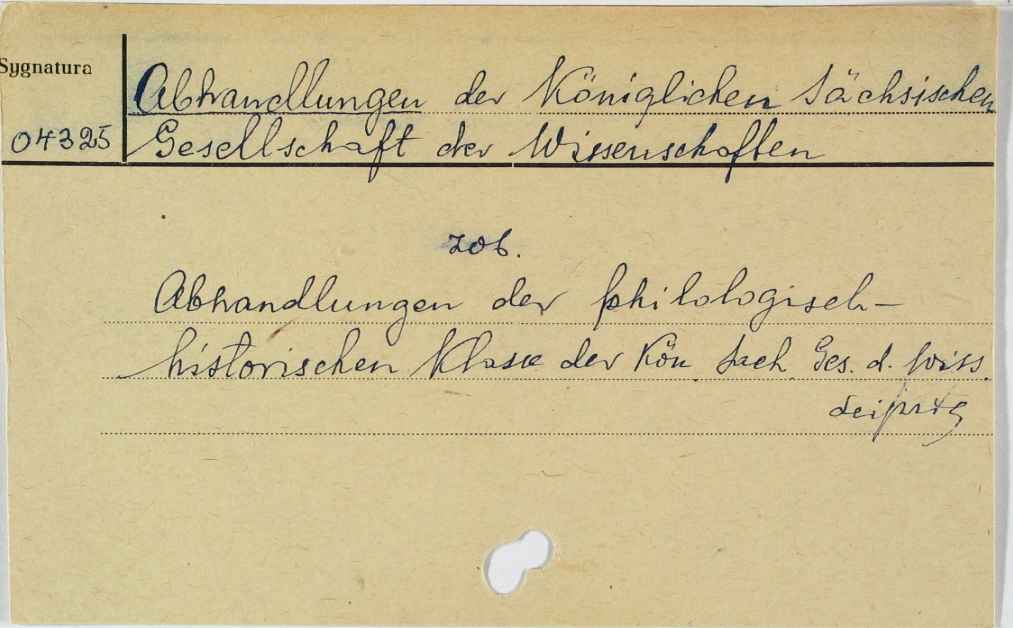 Sygnatura
Abhandlungen der Königlichen Sächsischen
04325 Gesellschaft der Wissenschaften
zob.
Abhandlungen der philologisch-
historischen Klasse der Kön Säch. Ges. d. Wiss.
Leipzig